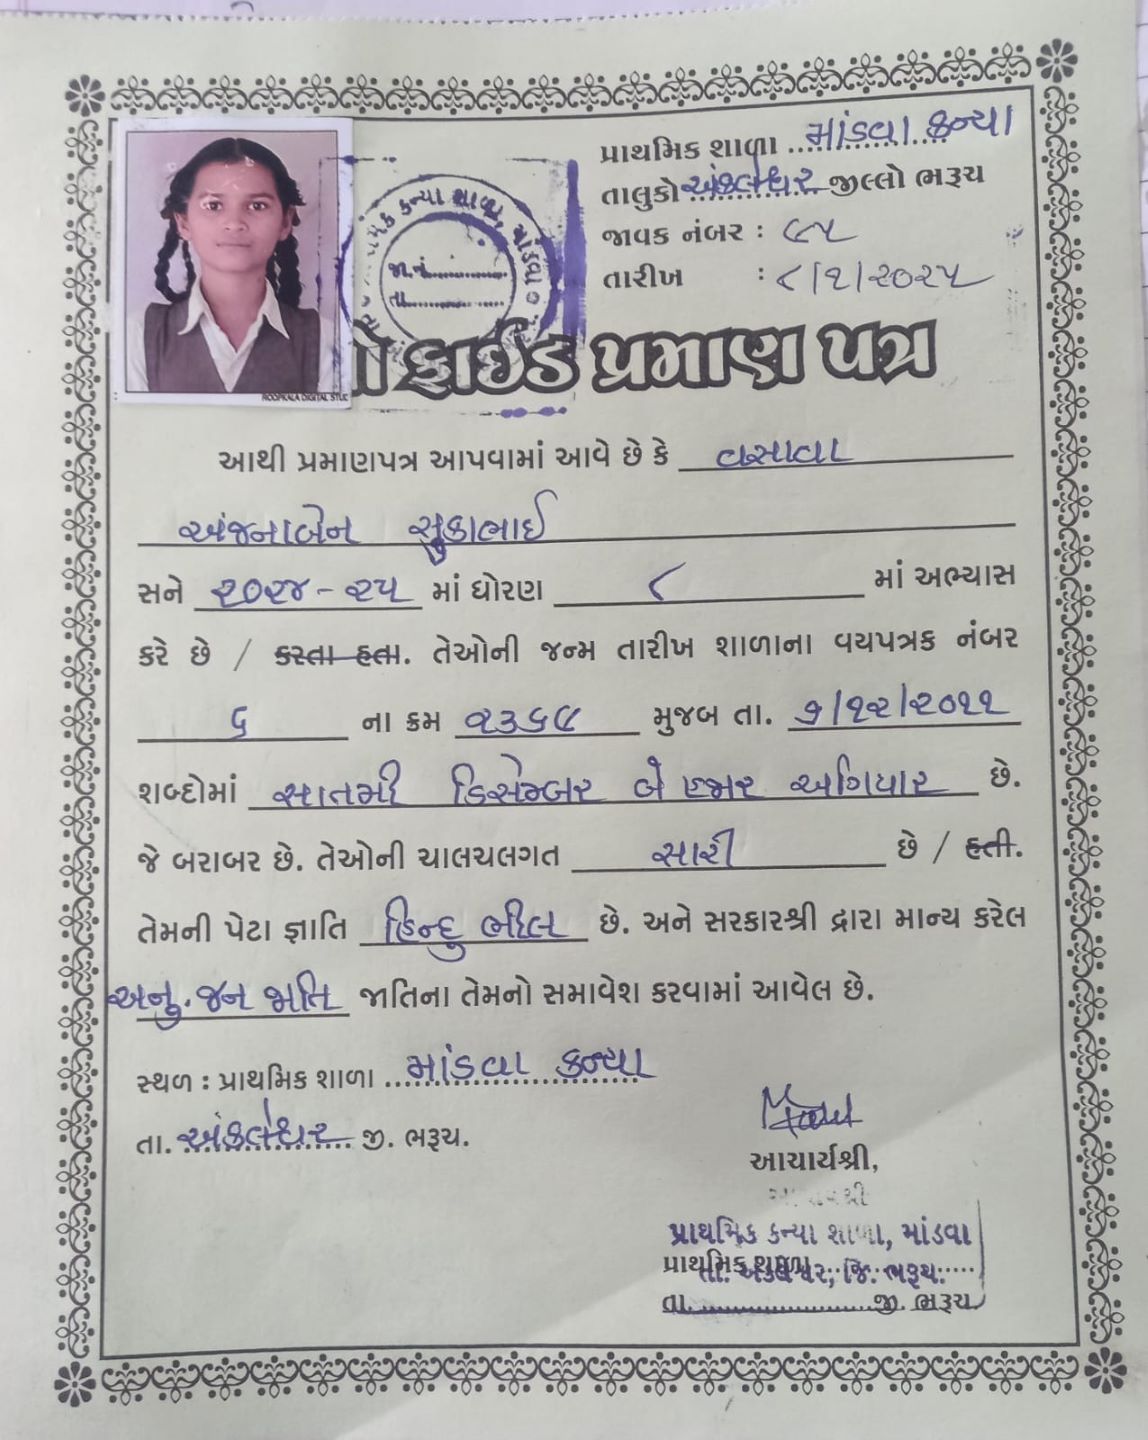 પ્રાથમિક શાળા માંડવા કન્યા
તાલુકો અંકલેશ્વર જીલ્લો ભરૂચ
જાવક નંબર : ૯૫
તારીખ : ૮/૧/૨૦૨૫
કન્યા શાળા, માંડવા
જા.નં.
તા.
ROOPKALA DIGITAL STUD
ફાઈડ પ્રમાણ પત્ર
આથી પ્રમાણપત્ર આપવામાં આવે છે કે વસાવા
અંજનાબેન સુકાભાઈ
સને ૨૦૨૪-૨૫ માં ધોરણ ૮ માં અભ્યાસ
કરે છે / કરતા હતા. તેઓની જન્મ તારીખ શાળાના વયપત્રક નંબર
૬ ના ક્રમ ૨૩૬૯ મુજબ તા. ૭/૧૨/૨૦૧૧
શબ્દોમાં સાતમી ડિસેમ્બર બે હજાર અગિયાર છે.
જે બરાબર છે. તેઓની ચાલચલગત સારી છે / હતી.
તેમની પેટા જ્ઞાતિ હિન્દુ ભીલ છે. અને સરકારશ્રી દ્વારા માન્ય કરેલ
અનુ. જન જાતિ જાતિના તેમનો સમાવેશ કરવામાં આવેલ છે.
સ્થળ : પ્રાથમિક શાળા માંડવા કન્યા
તા. અંકલેશ્વર જી. ભરૂચ.
આચાર્યશ્રી,
પ્રાથમિક કન્યા શાળા, માંડવા
તા. અંકલેશ્વર, જિ. ભરૂચ.
પ્રાથમિક શાળા
તા. જી. ભરૂચ